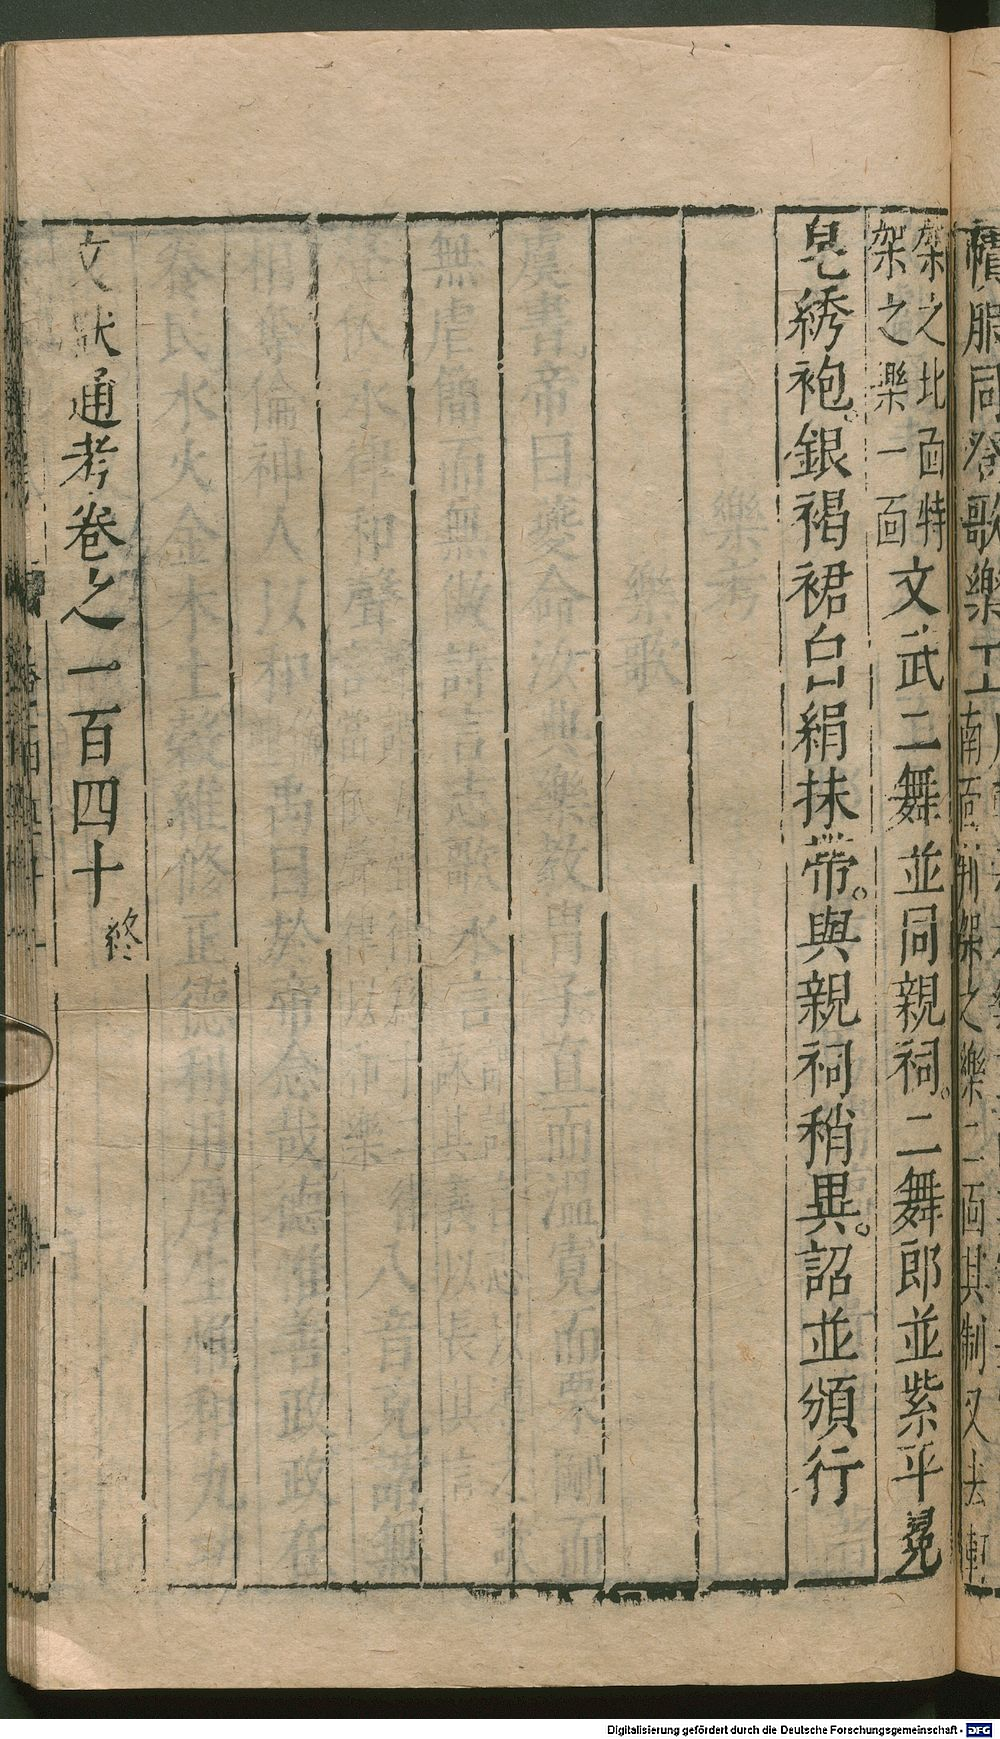 幘服同登歌樂工南面制架之樂二面其制又去軒
架之北面特
架之樂一面
文武二舞並同親祠。二舞郎並紫平冕
皂綉袍。銀褐裙白絹抹帶。與親祠稍異。詔並頒行
文献通考卷之一百四十
終
Digitalisierung gefördert durch die Deutsche Forschungsgemeinschaft - DFG